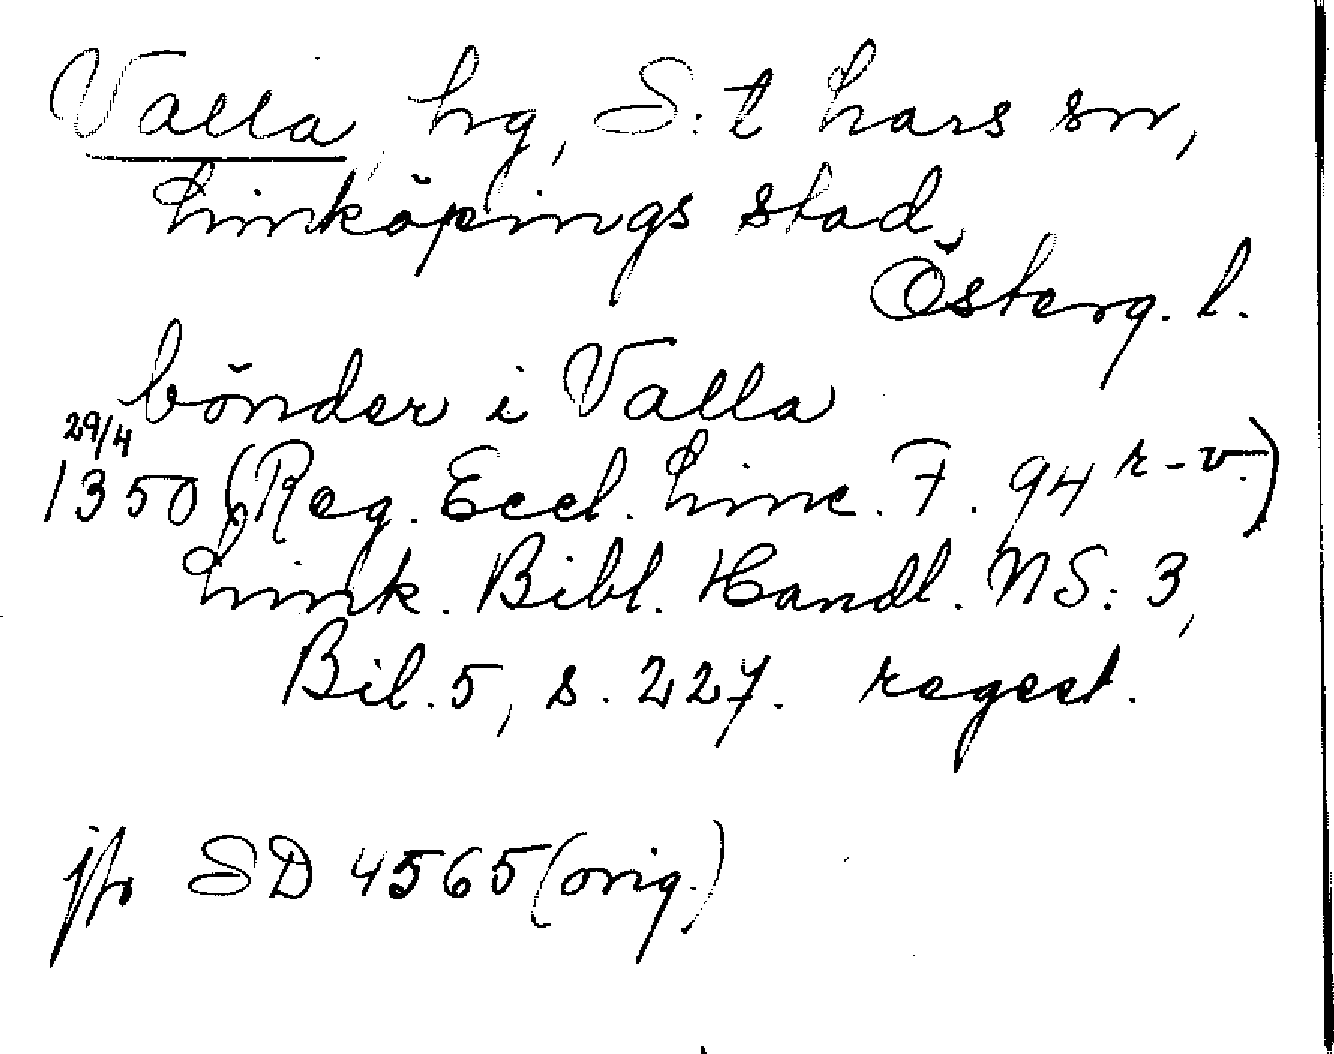 Valla, hg, S:t Lars sn,
Linköpings stad,
Österg. l.
bönder i Valla
29/4
1350 (Reg. Eccl. Linc. F. 94 r-v.)
Link. Bibl. Handl. NS: 3,
Bil. 5, s. 227. regest.
jfr SD 4565 (orig.)